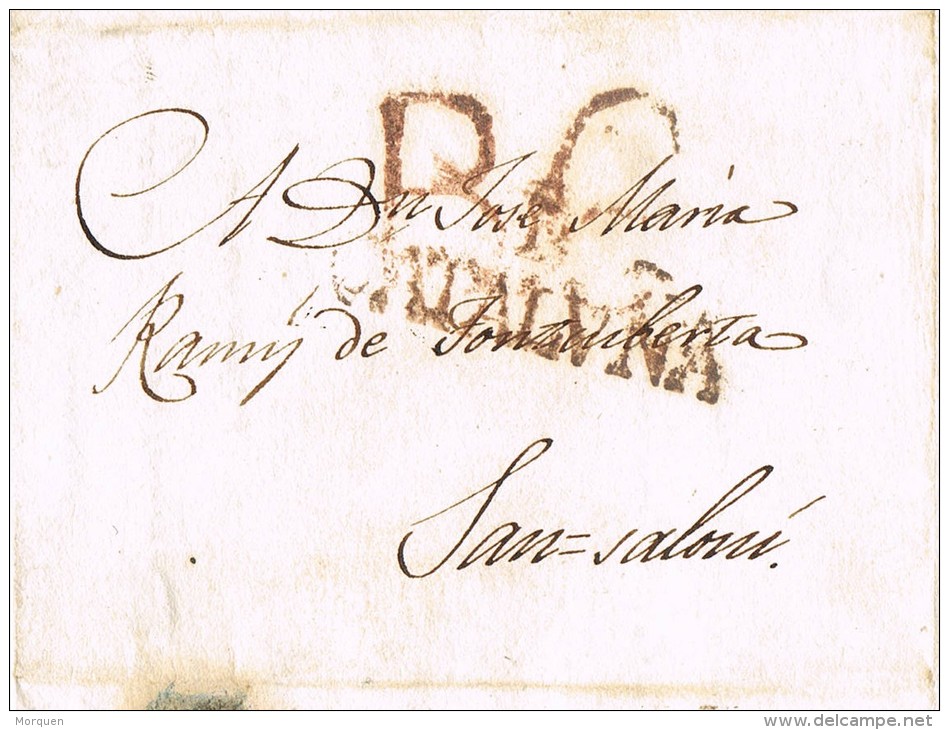 B.C
CATALUÑA
A Dn Jose Maria
Ramis de Fontcuberta
San=saloni.
Morquen
www.delcampe.net